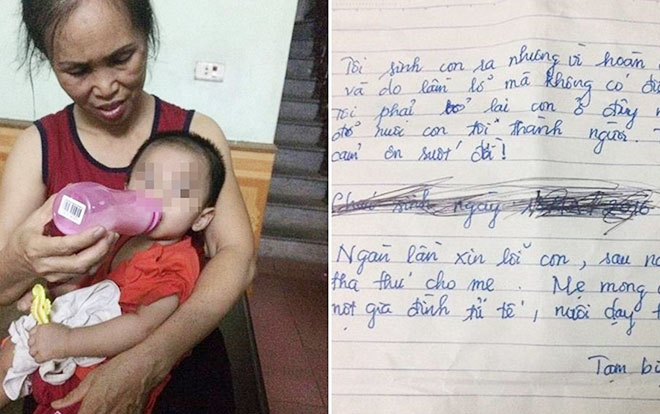 Tôi sinh con ra nhưng vì hoàn
và do lầm lỡ mà không có
Tôi phải bỏ lại con ở đây
nuôi con tôi thành người.
cảm ơn suốt đời!
Cháu sinh ngày 2016
Ngàn lần xin lỗi con, sau
tha thứ cho mẹ. Mẹ mong
một gia đình tử tế, nuôi dạy
Tạm